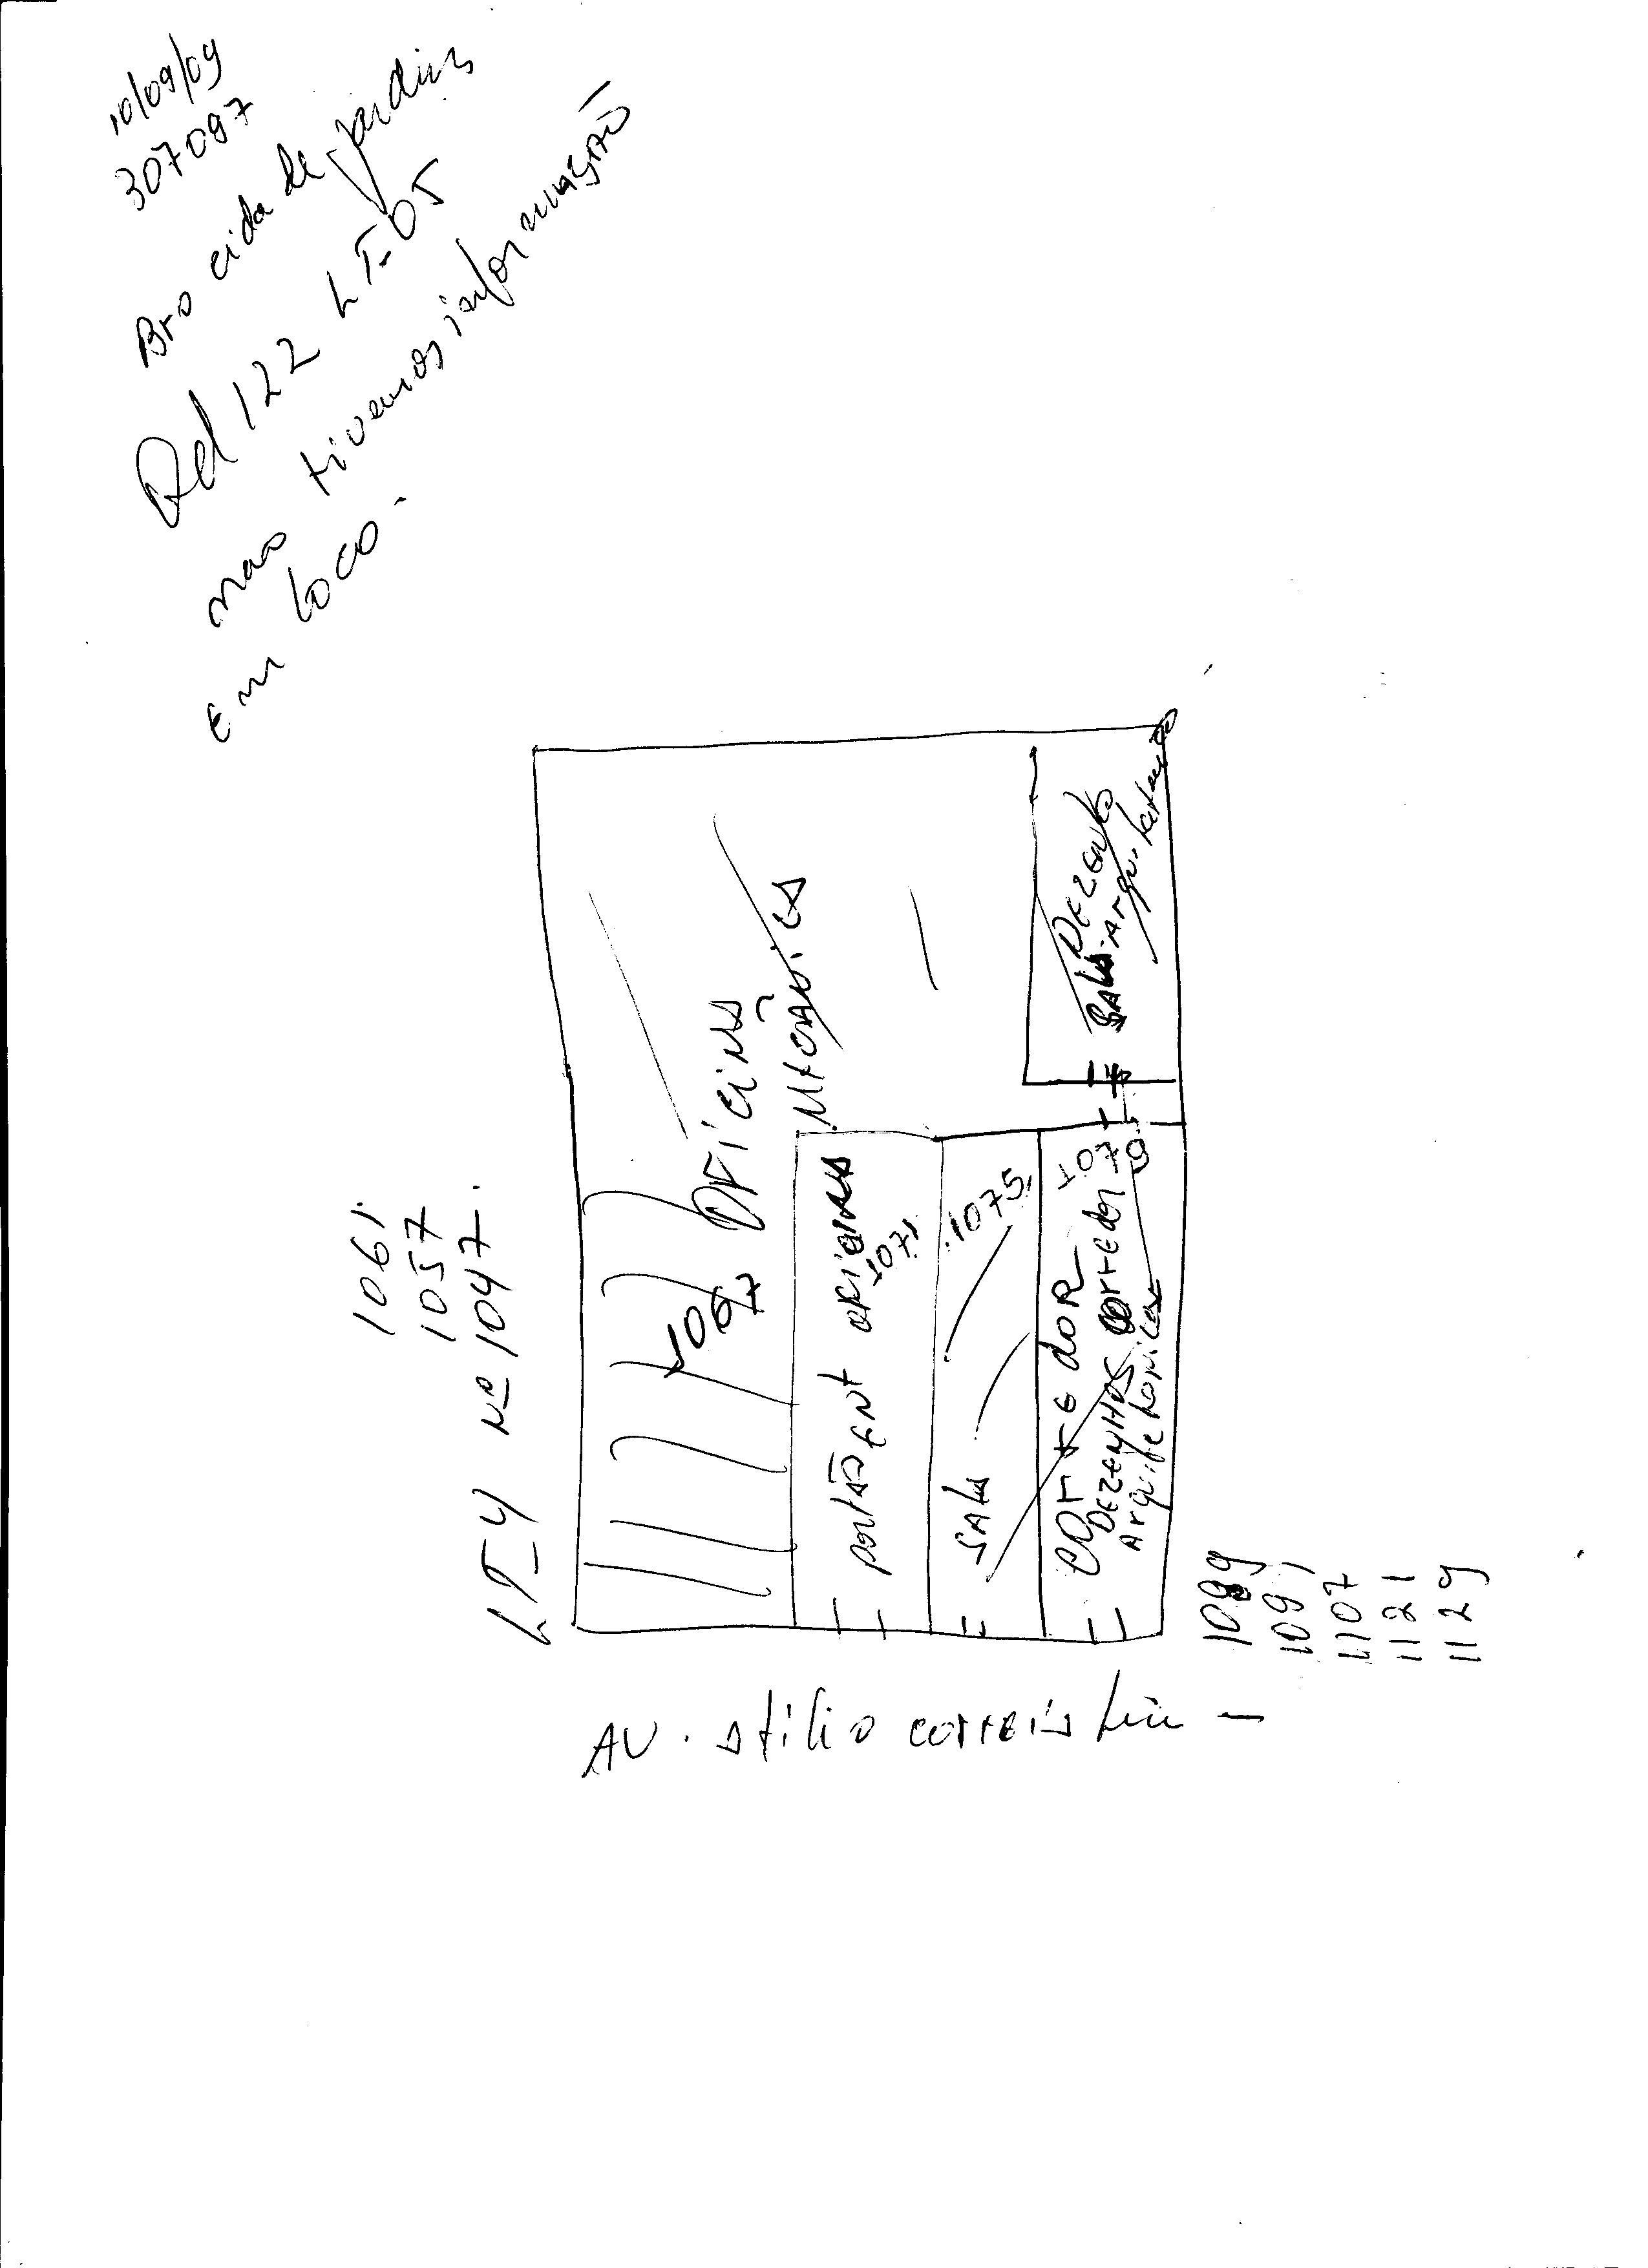 10/09/09
307097
Bro cidade jardins
Qd 122 LT-05
nao tivemos informação
em loco.
1061
1057
LT-4 nº 1047.
1067
OFICINA
MECANICA
portão ENT OFICINA
1071
SALA
1075
CORREDOR
DEZENHOS corredor
Arquitetonicos
107
DEZENho
SALA Arquitetonico
1089
1091
1107
1121
1129
AV. Atilio correia Lima -